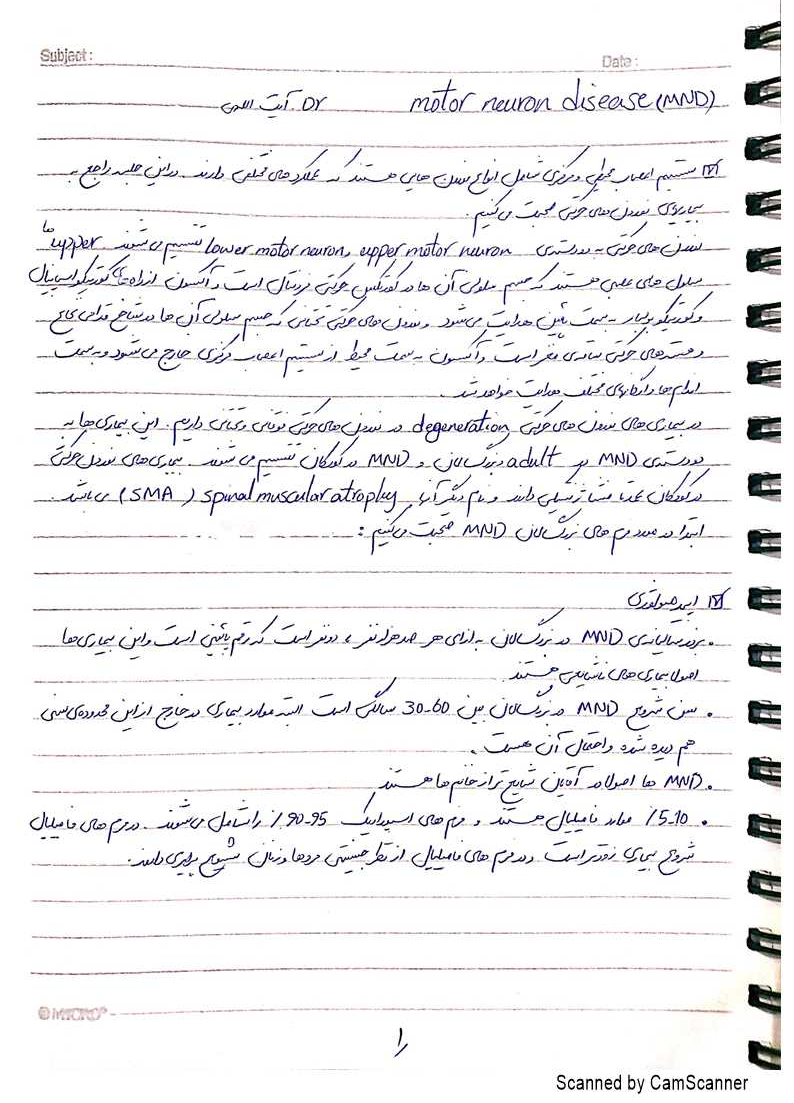 Subject:
Date:
motor neuron disease (MND) Dr آیت اللهی
سیستم اعصاب محیطی و مرکزی شامل انواع نورون هایی هستند که عملکردهای مختلفی دارند. در این جلسه راجع به
بیماریهای نورون های حرکتی صحبت می کنیم.
نورون های حرکتی به دو دسته ی upper motor neuron و lower motor neuron تقسیم می شوند. upper ها
سلول های عصبی هستند که جسم سلولی آن ها در کورتکس حرکتی فرونتال است و آکسون از راه های کورتیکواسپاینال
و کورتیکوبولبار به سمت پائین هدایت می شود و نورون های حرکتی تحتانی که جسم سلولی آن ها در شاخ قدامی نخاع
و هسته های حرکتی ساقه ی مغز است و آکسون به سمت محیط از سیستم اعصاب مرکزی خارج می شود و به سمت
اندام ها و ارگانهای مختلف هدایت خواهد شد.
در بیماری های نورون های حرکتی degeneration در نورون های حرکتی فوقانی و تحتانی داریم. این بیماری ها به
دو دسته ی MND در adult و بزرگسالان و MND در کودکان تقسیم می شوند. بیماری های نورون حرکتی
در کودکان عمدتا منشا ژنتیکی دارند و نام دیگر آن spinal muscular atrophy (SMA) می باشد.
ابتدا در مورد فرم های بزرگسالان MND صحبت می کنیم:
اپیدمیولوژی
• بروز سالیانه ی MND در بزرگسالان به ازای هر صد هزار نفر، دو نفر است که رقم پائینی است و این بیماری ها
اصولا بیماری های ناشایعی هستند
• سن شروع MND در بزرگسالان بین 30-60 سالگی است البته موارد بیماری در خارج از این محدوده ی سنی
هم دیده شده و احتمال آن هست.
• MND ها اصولا در آقایان شایع تر از خانم ها هستند
• 5-10٪ موارد فامیلیال هستند و فرم های اسپورادیک 90-95٪ را شامل می شوند. در فرم های فامیلیال
شروع بیماری زودتر است و در فرم های فامیلیال از نظر جنسیتی مردها و زنان شیوع برابری دارند.
MICRO
۱
Scanned by CamScanner